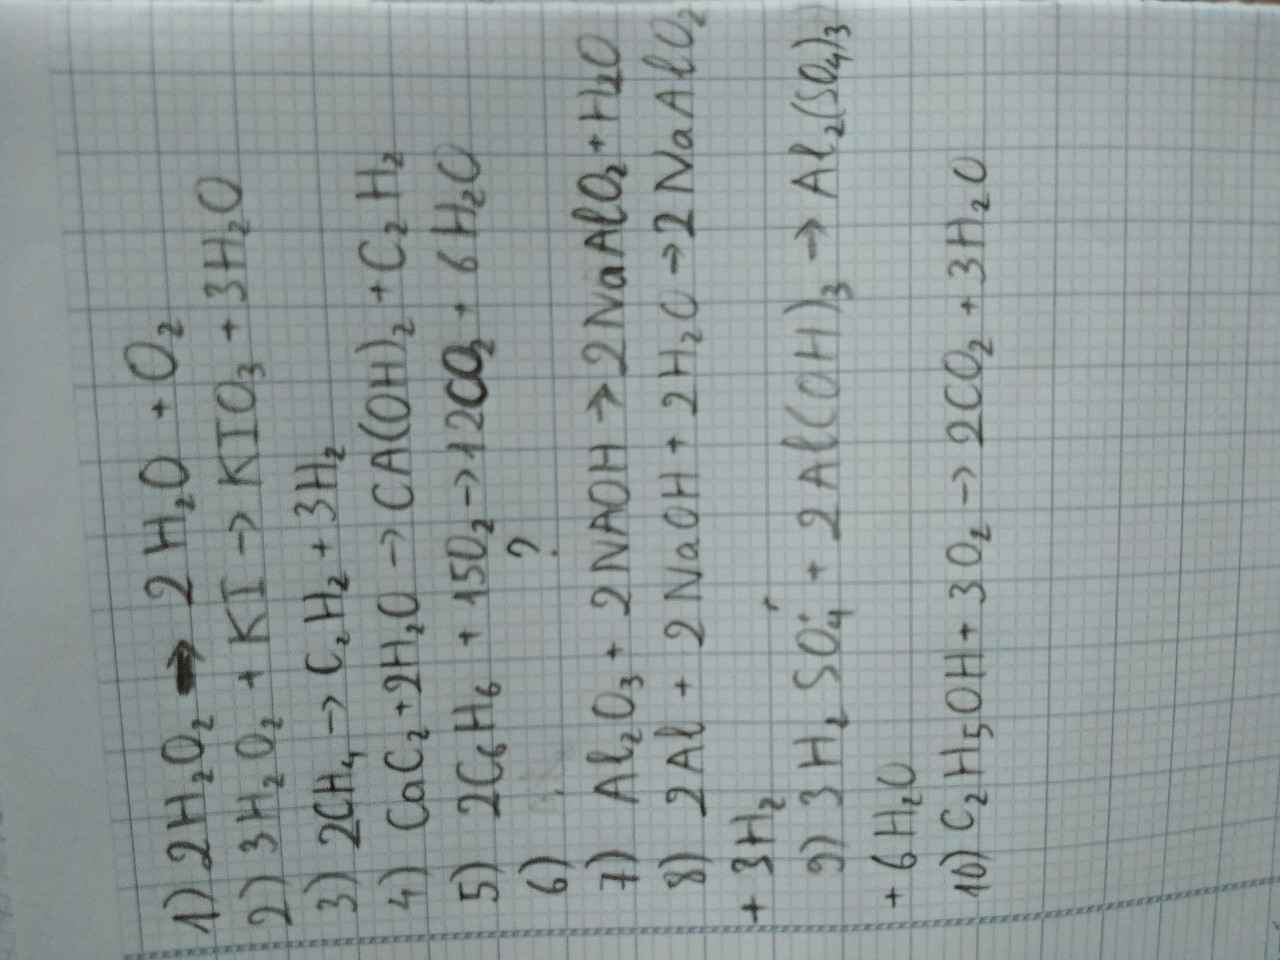 1) 2H₂O₂ → 2H₂O + O₂
2) 3H₂O₂ + KI → KIO₃ + 3H₂O
3) 2CH₄ → C₂H₂ + 3H₂
4) CaC₂ + 2H₂O → CA(OH)₂ + C₂H₂
5) 2C₆H₆ + 15O₂ → 12CO₂ + 6H₂O
6) ?
7) Al₂O₃ + 2NAOH → 2NaAlO₂ + H₂O
8) 2Al + 2NaOH + 2H₂O → 2NaAlO₂
+ 3H₂
9) 3H₂SO₄ + 2Al(OH)₃ → Al₂(SO₄)₃
+ 6H₂O
10) C₂H₅OH + 3O₂ → 2CO₂ + 3H₂O